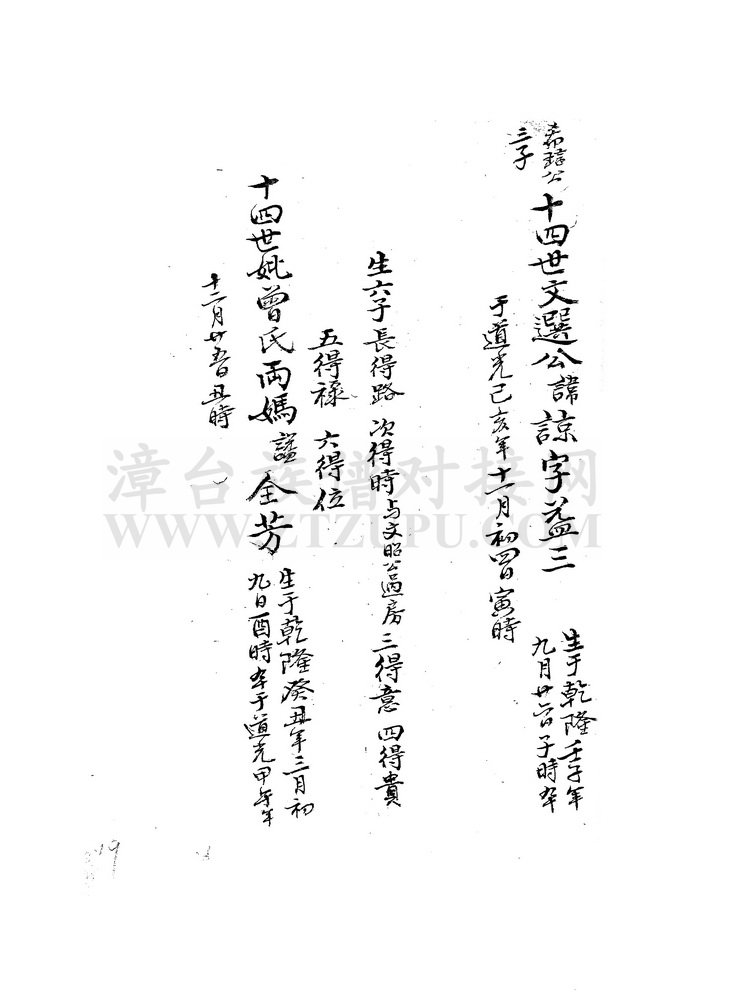 希璋公
三子
十四世文選公諱諒字益三
生于乾隆壬子年
九月廿六日子時卒
于道光己亥年十一月初四日寅時
生六子長得路 次得時与文昭公過房 三得意 四得貴
五得祿 六得位
十四世妣曾氏両媽諡全芳
生于乾隆癸丑年三月初
九日酉時卒于道光甲午年
十二月廿五日丑時
漳台族谱对接网
WWW.ZTZUPU.COM
19